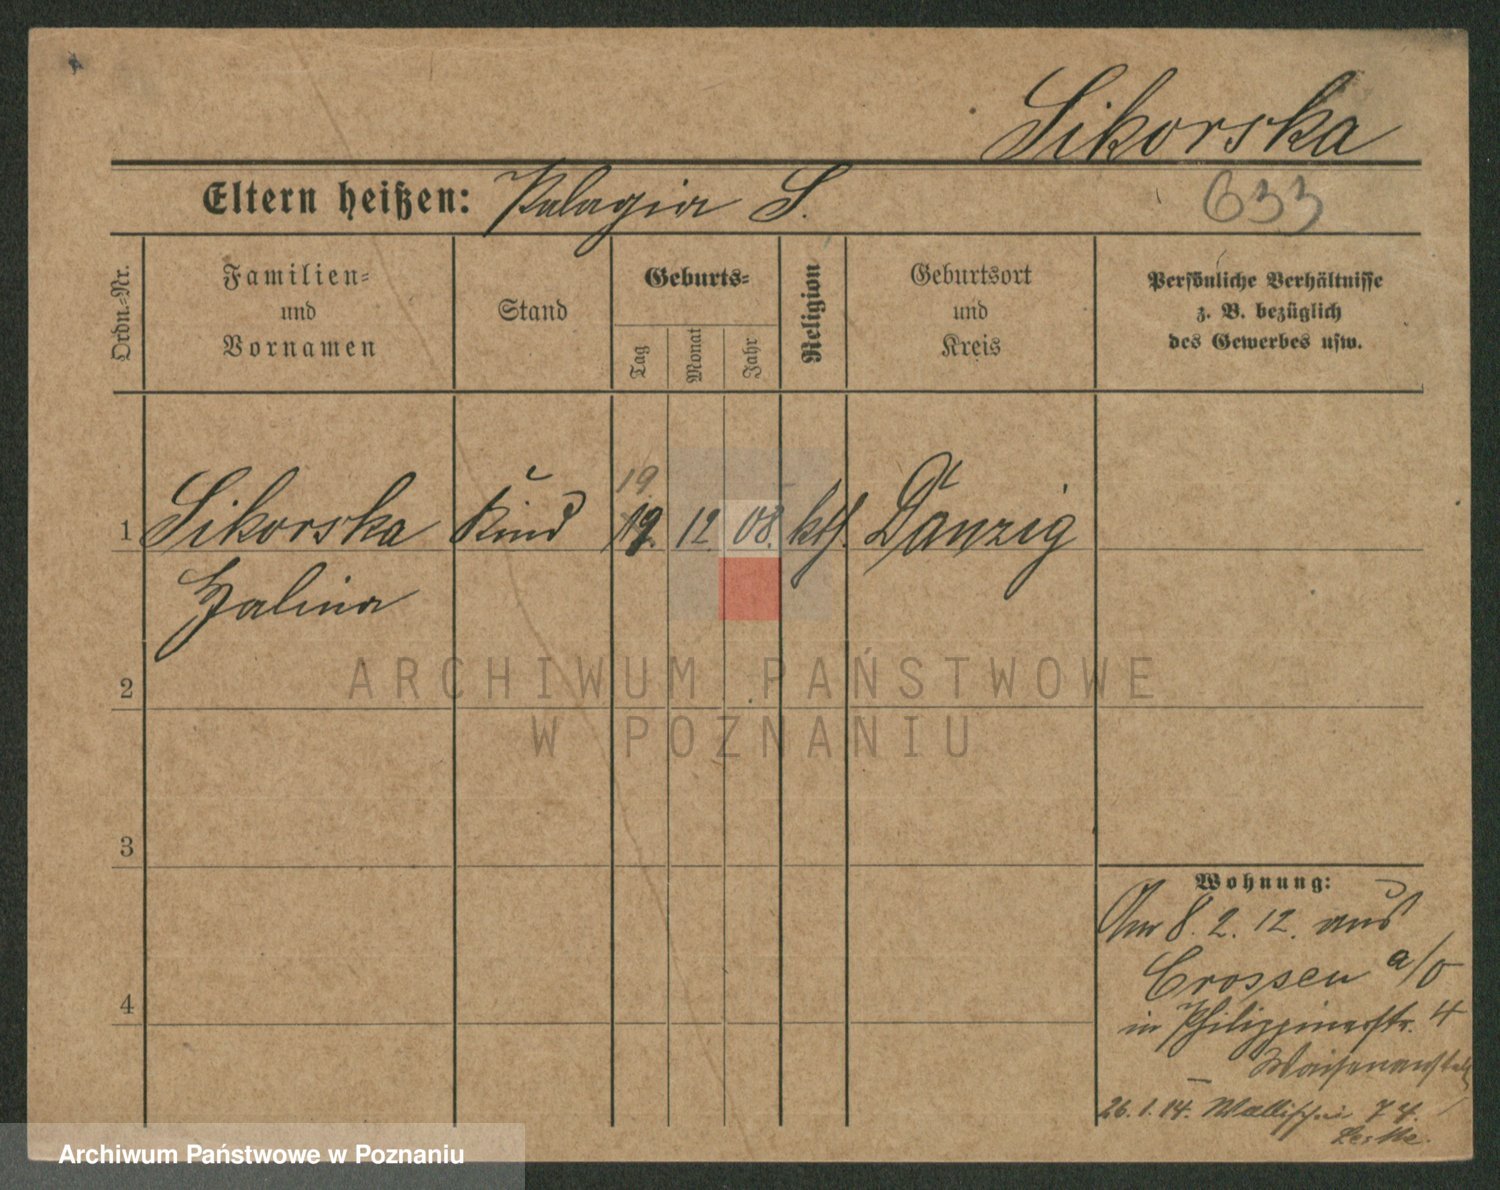 Sikorska
Eltern heißen: Pelagia S.
633
Ordn.-Nr.
Familien-
und
Vornamen
Stand
Geburts-
Tag
Monat
Jahr
Religion
Geburtsort
und
Kreis
Persönliche Verhältnisse
z. B. bezüglich
des Gewerbes usw.
19.
1 Sikorska Kind 19. 12. 08. kth. Danzig
Halina
2
3
4
ARCHIWUM PAŃSTWOWE
W POZNANIU
Wohnung:
Am 8. 2. 12. aus
Crossen a/O
in Philippinerstr. 4
Waisenanstalt
26. 1. 14. Wallischei 74.
Archiwum Państwowe w Poznaniu